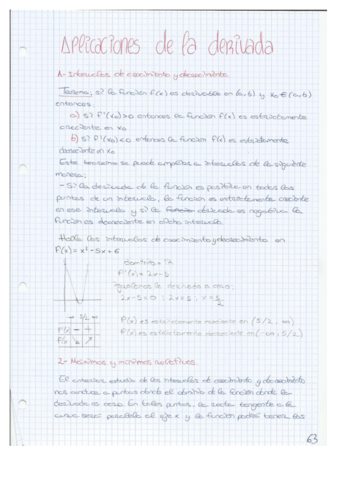 Aplicaciones de la derivada
1- Intervalos de crecimiento y decrecimiento.
Teorema: si la función f(x) es derivable en (a,b) y x₀ ∈ (a,b)
entonces:
a) Si f'(x₀)>0 entonces la función f(x) es estrictamente
creciente en x₀
b) Si f'(x₀)<0 entonces la función f(x) es estrictamente
decreciente en x₀.
Este teorema se puede ampliar a intervalos de la siguiente
manera:
- Si la derivada de la función es positiva en todos los
puntos de un intervalo, la función es estrictamente creciente
en ese intervalo y si la derivada es negativa la
función es decreciente en dicho intervalo.
Halla los intervalos de crecimiento y decrecimiento en
f(x)= x²-5x+6
Dom f(x) = ℝ
f'(x) = 2x-5
Igualamos la derivada a cero:
2x-5=0 ; 2x=5 ; x=5/2
5/2
f'(x) - +
f(x) ↘ ↗
f(x) es estrictamente creciente en (5/2, ∞)
f(x) es estrictamente decreciente en (-∞, 5/2)
2- Máximos y mínimos relativos.
El anterior estudio de los intervalos de crecimiento y decrecimiento
nos conduce a puntos donde el dominio de la función donde la
derivada es cero. En tales puntos, la recta tangente a la
curva será paralela al eje x y la función podrá tener los
63